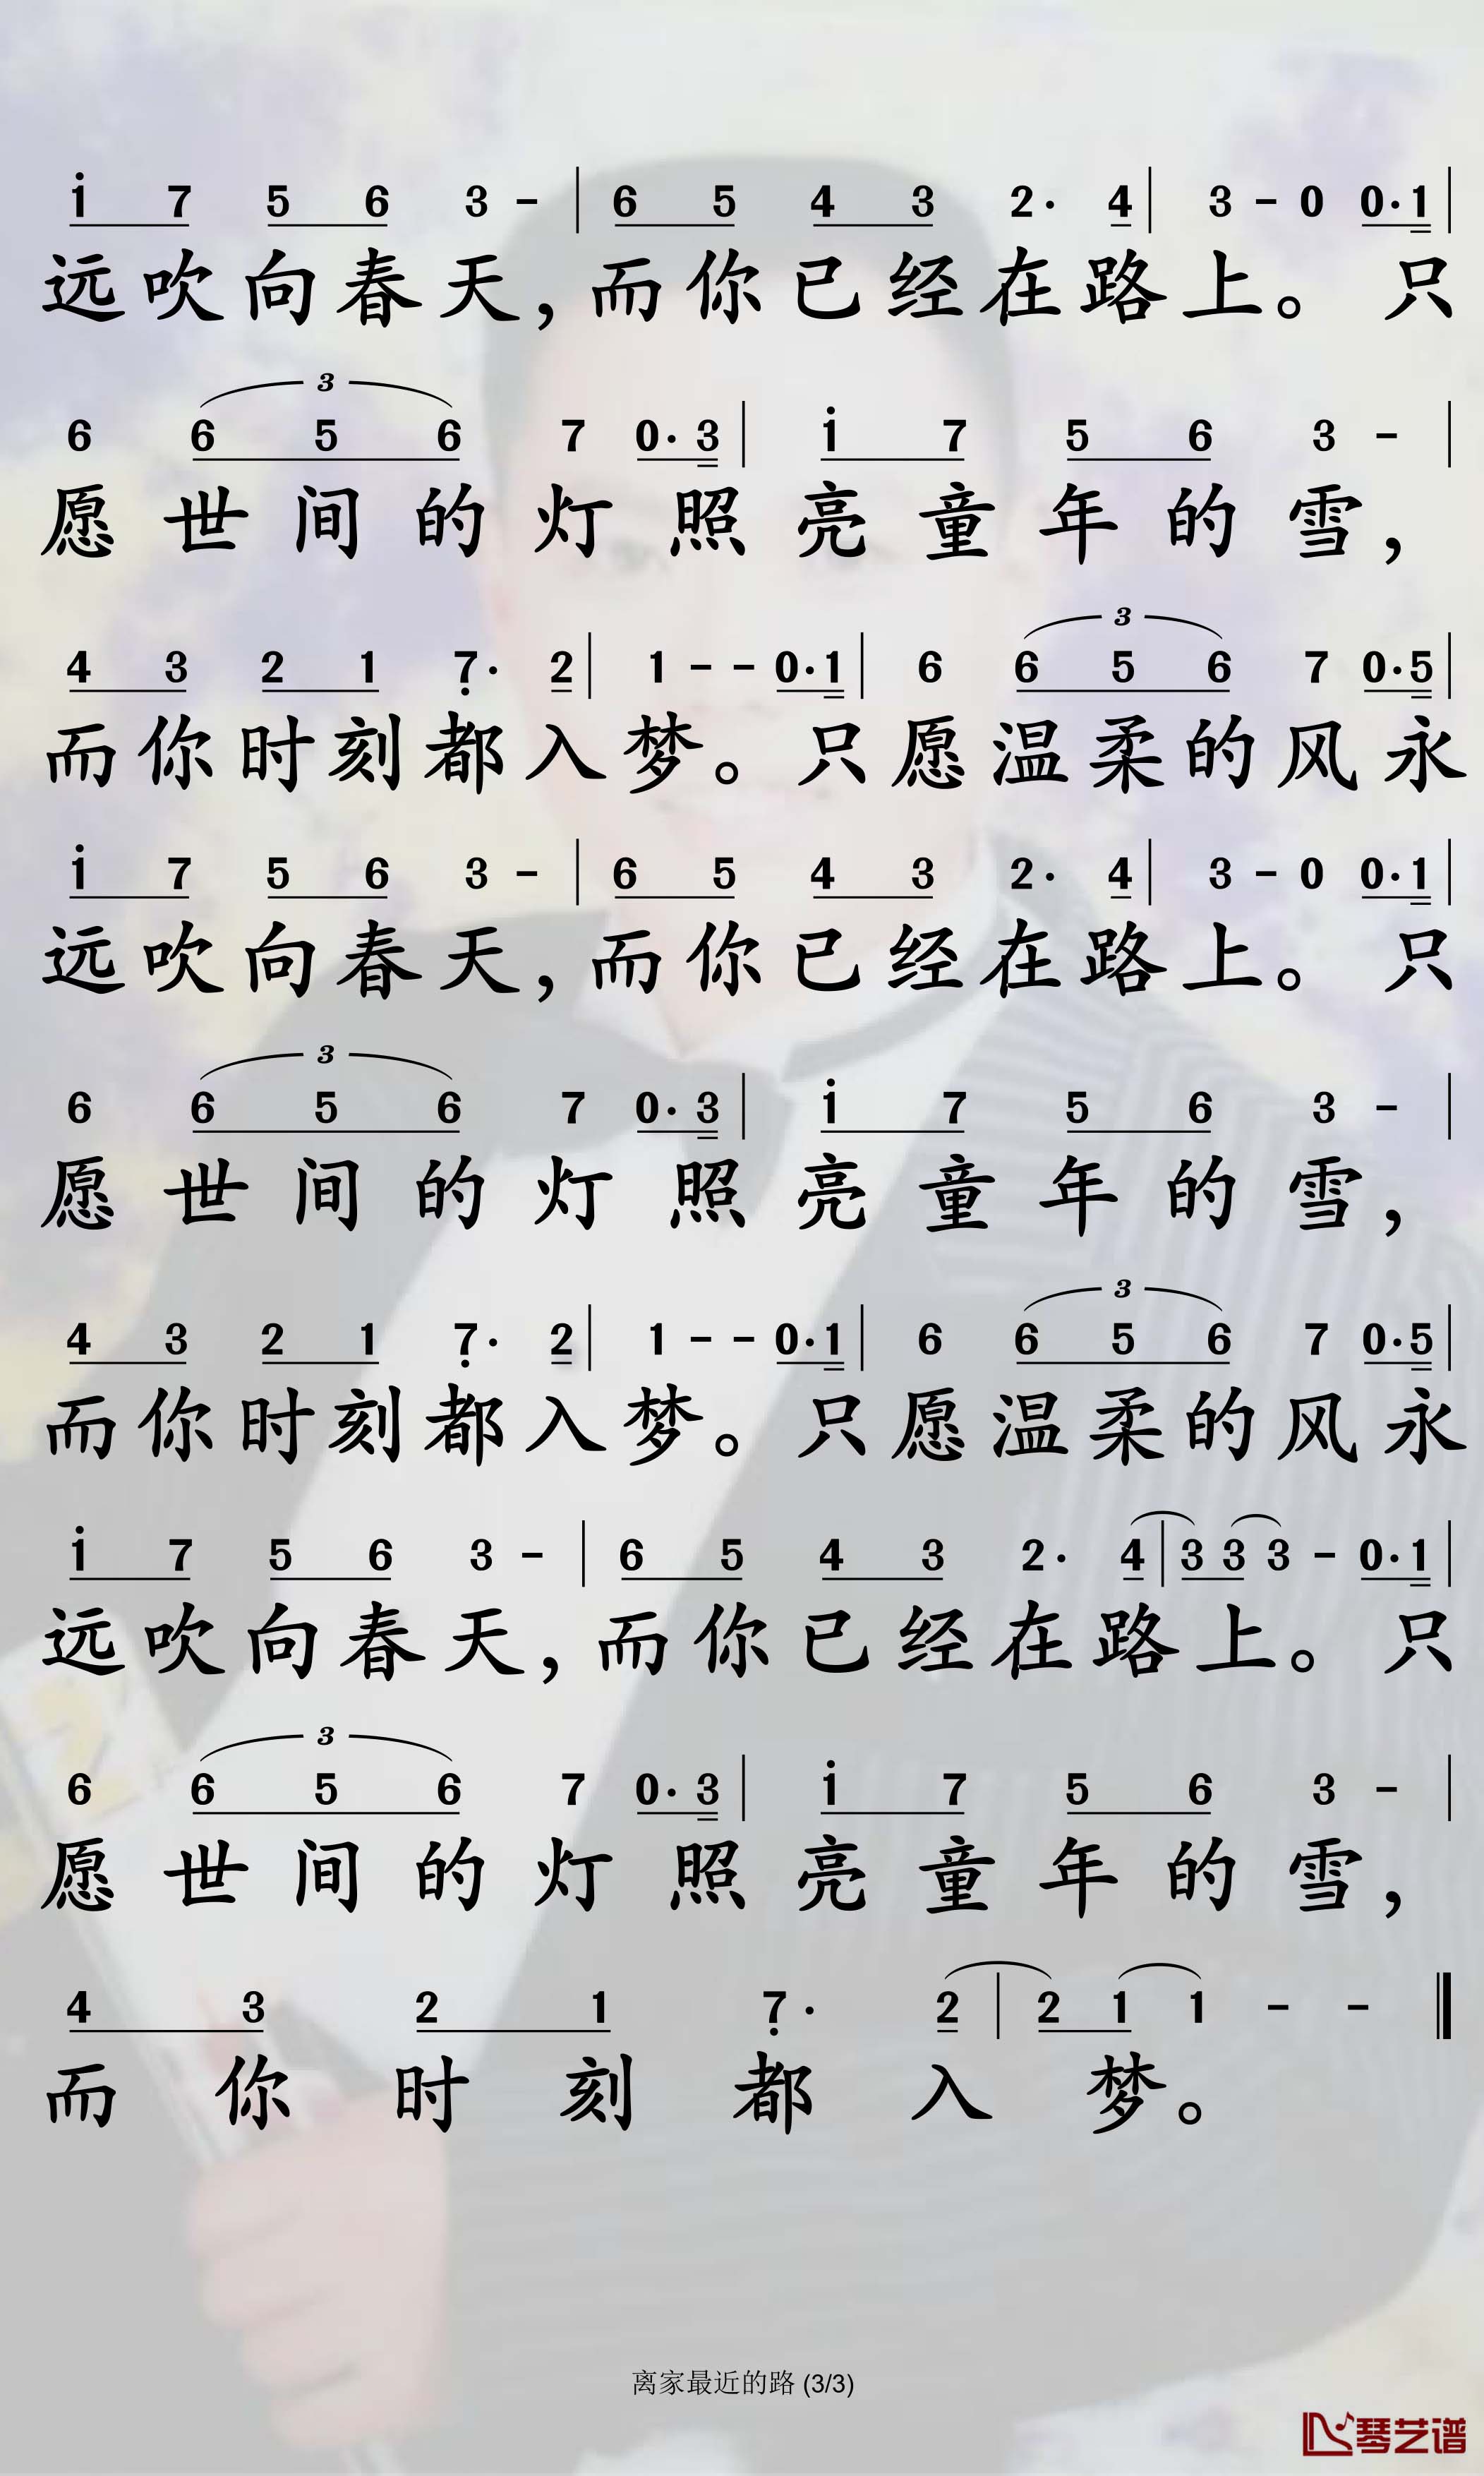 i 7 5 6 3 - | 6 5 4 3 2· 4 | 3 - 0 0·1 |
远吹向春天,而你已经在路上。只
3
6 6 5 6 7 0·3 | i 7 5 6 3 - |
愿世间的灯照亮童年的雪,
3
4 3 2 1 7· 2 | 1 - - 0·1 | 6 6 5 6 7 0·5 |
而你时刻都入梦。只愿温柔的风永
i 7 5 6 3 - | 6 5 4 3 2· 4 | 3 - 0 0·1 |
远吹向春天,而你已经在路上。只
3
6 6 5 6 7 0·3 | i 7 5 6 3 - |
愿世间的灯照亮童年的雪,
3
4 3 2 1 7· 2 | 1 - - 0·1 | 6 6 5 6 7 0·5 |
而你时刻都入梦。只愿温柔的风永
i 7 5 6 3 - | 6 5 4 3 2· 4 | 3 3 3 - 0·1 |
远吹向春天,而你已经在路上。只
3
6 6 5 6 7 0·3 | i 7 5 6 3 - |
愿世间的灯照亮童年的雪,
4 3 2 1 7· 2 | 2 1 1 - - ‖
而你时刻都入梦。
离家最近的路 (3/3)
琴艺谱